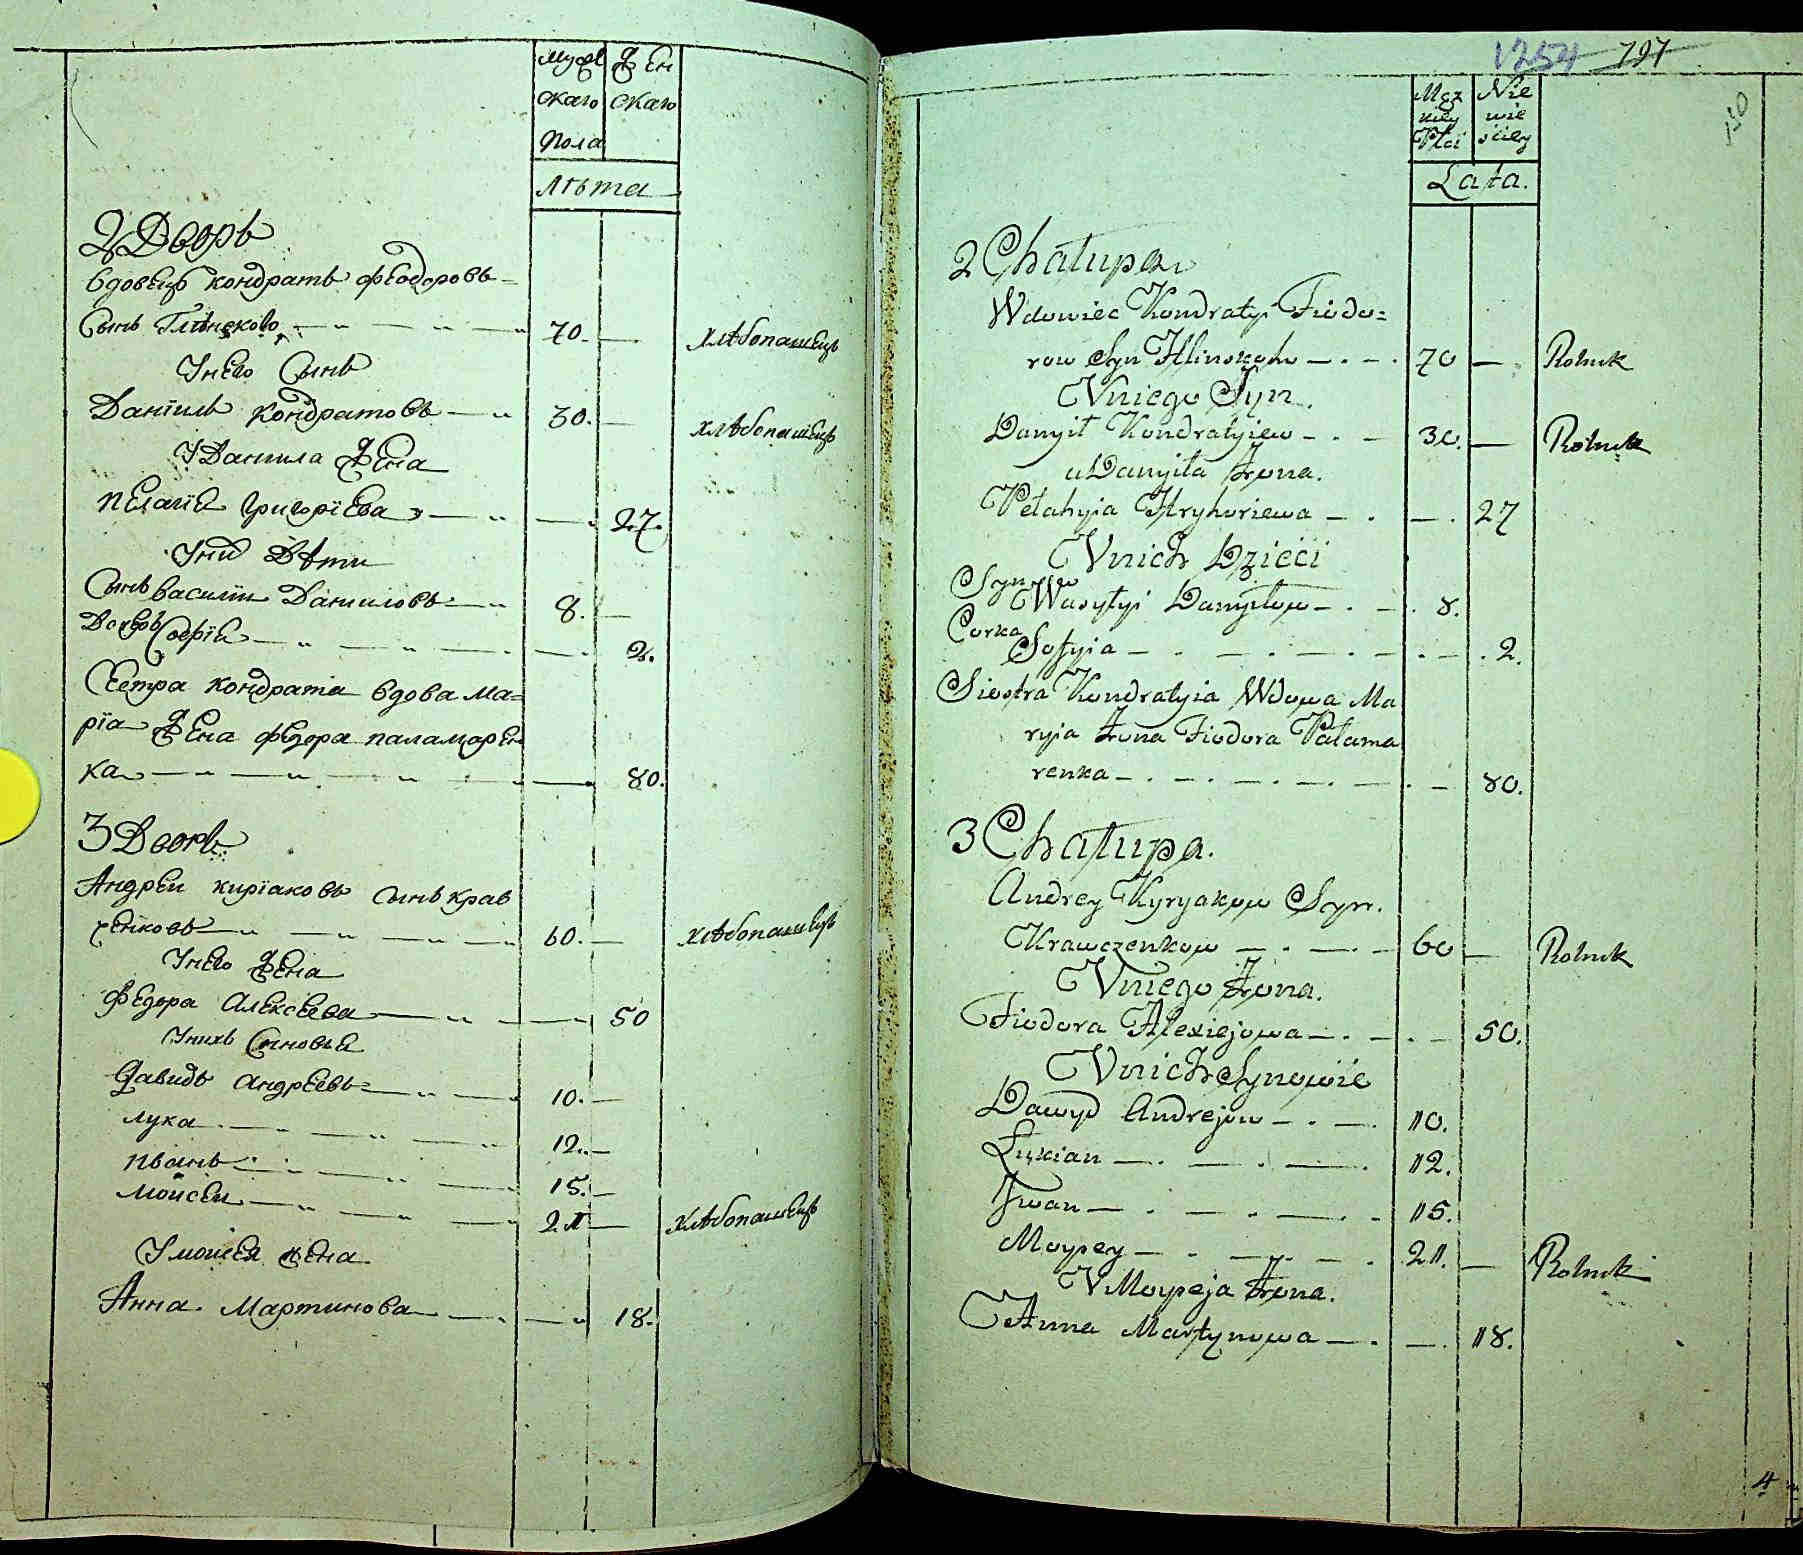 муже жен
скаго скаго
пола
Лѣта
2 Дворъ
Вдовецъ Кондратъ Феодоровъ=
Сынъ Глѣнсково 70. — хлѣбопашецъ
У него Сынъ
Данїилъ Кондратовъ 30. — хлѣбопашецъ
У Данила Жена
Пелагїе Григорїева — 27.
У ни Дѣти
Сынъ Василїи Даниловъ 8. —
Дочь Софїя — 2.
Сестра Кондратїя вдова Ма=
рїа Жена Федора Паламарен
ка — 80.
3 Дворъ
Андреи Кирїаковъ Сынъ Крав
ченковъ 60. — хлѣбопашецъ
У него Жена
Федора Алексеева — 50
У нихъ Синовья
Давидъ Андреевъ= 10. —
Лука 12. —
Иванъ 15. —
Мойсеи 21 — хлѣбопашецъ
У Мойсея Жена
Анна Мартинова — 18.
1254 797
150
Męz Nie
kiey wie
Płci sciey
Lata.
2 Chałupa
Wdowiec Kondratyi Fiodo=
row Syn Hlinskoho — 70 — Rolnik
Vniego Syn.
Danyił Kondratyiew — 30. — Rolnik
u Danyiła Żona.
Pełahyia Hryhoriewa — — 27
Vnich Dzieci
Syn Wasytyi Danyiłow — 8.
Corka Sofyia — 2.
Siostra Kondratyia Wdowa Ma
ryia Żona Fiodora Pałama
renka — 80.
3 Chałupa.
Andrey Kyryakow Syn.
Krawczenkow — 60 — Rolnik
Vniego Żona.
Fiodora Alexiejowa — 50.
Vnich Synowie
Dawyd Andrejow — 10.
Łukian — 12.
Iwan — 15.
Moysey — 21. — Rolnik
V Moyseja Żona.
Anna Martynowa — — 18.
4